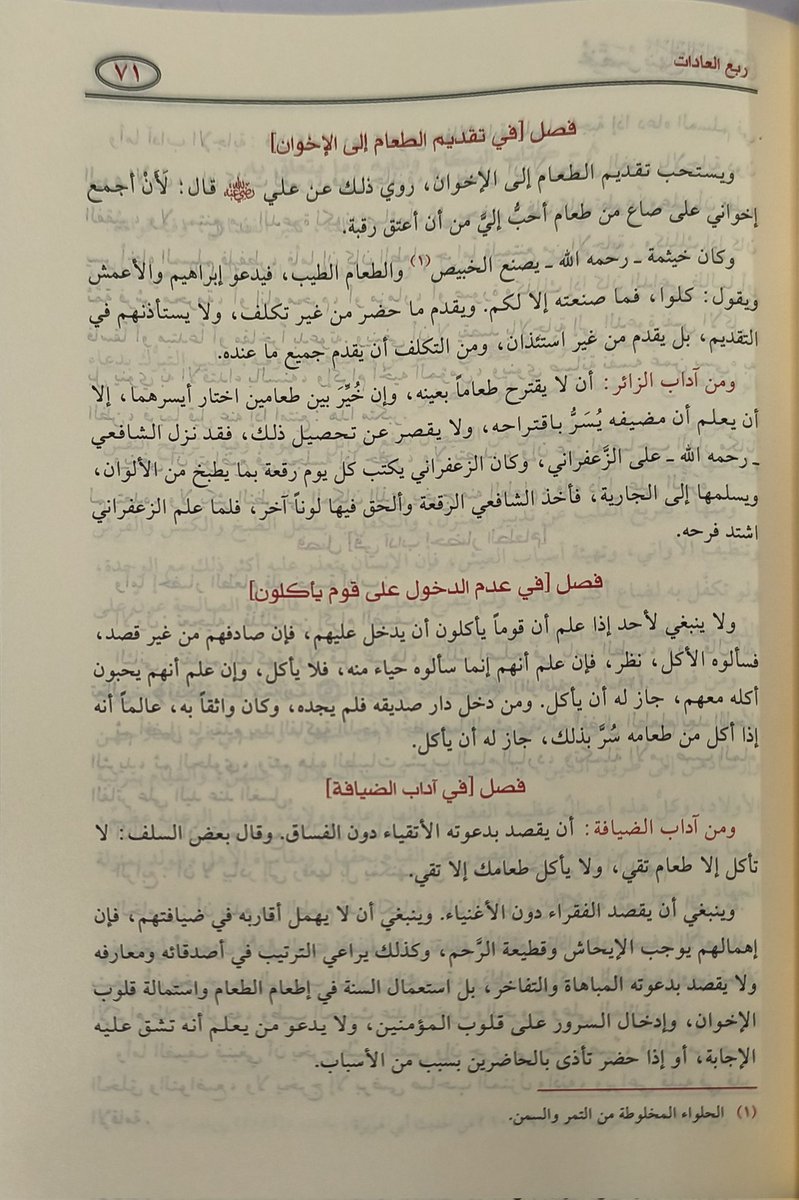 ربع العادات
٧١
فصل [في تقديم الطعام إلى الإخوان]
ويستحب تقديم الطعام إلى الإخوان، روي ذلك عن علي رضي الله عنه قال: لَأنْ أجمع
إخواني على صاع من طعام أحبُّ إليَّ من أن أعتق رقبة.
وكان خيثمة ـ رحمه الله ـ يصنع الخبيص(١) والطعام الطيب، فيدعو إبراهيم والأعمش
ويقول: كلوا، فما صنعته إلا لكم. ويقدم ما حضر من غير تكلف، ولا يستأذنهم في
التقديم، بل يقدم من غير استئذان، ومن التكلف أن يقدم جميع ما عنده.
ومن آداب الزائر: أن لا يقترح طعاماً بعينه، وإن خُيِّرَ بين طعامين اختار أيسرهما، إلا
أن يعلم أن مضيفه يُسَرُّ باقتراحه، ولا يقصر عن تحصيل ذلك، فقد نزل الشافعي
ـ رحمه الله ـ على الزَّعفراني، وكان الزعفراني يكتب كل يوم رقعة بما يطبخ من الألوان،
ويسلمها إلى الجارية، فأخذ الشافعي الرقعة وألحق فيها لوناً آخر، فلما علم الزعفراني
اشتد فرحه.
فصل [في عدم الدخول على قوم يأكلون]
ولا ينبغي لأحد إذا علم أن قوماً يأكلون أن يدخل عليهم، فإن صادفهم من غير قصد،
فسألوه الأكل، نظر، فإن علم أنهم إنما سألوه حياء منه، فلا يأكل، وإن علم أنهم يحبون
أكله معهم، جاز له أن يأكل. ومن دخل دار صديقه فلم يجده، وكان واثقاً به، عالماً أنه
إذا أكل من طعامه سُرَّ بذلك، جاز له أن يأكل.
فصل [في آداب الضيافة]
ومن آداب الضيافة: أن يقصد بدعوته الأتقياء دون الفساق. وقال بعض السلف: لا
تأكل إلا طعام تقي، ولا يأكل طعامك إلا تقي.
وينبغي أن يقصد الفقراء دون الأغنياء. وينبغي أن لا يهمل أقاربه في ضيافتهم، فإن
إهمالهم يوجب الإيحاش وقطيعة الرَّحم، وكذلك يراعي الترتيب في أصدقائه ومعارفه
ولا يقصد بدعوته المباهاة والتفاخر، بل استعمال السنة في إطعام الطعام واستمالة قلوب
الإخوان، وإدخال السرور على قلوب المؤمنين، ولا يدعو من يعلم أنه تشق عليه
الإجابة، أو إذا حضر تأذى بالحاضرين بسبب من الأسباب.
(١) الحلواء المخلوطة من التمر والسمن.